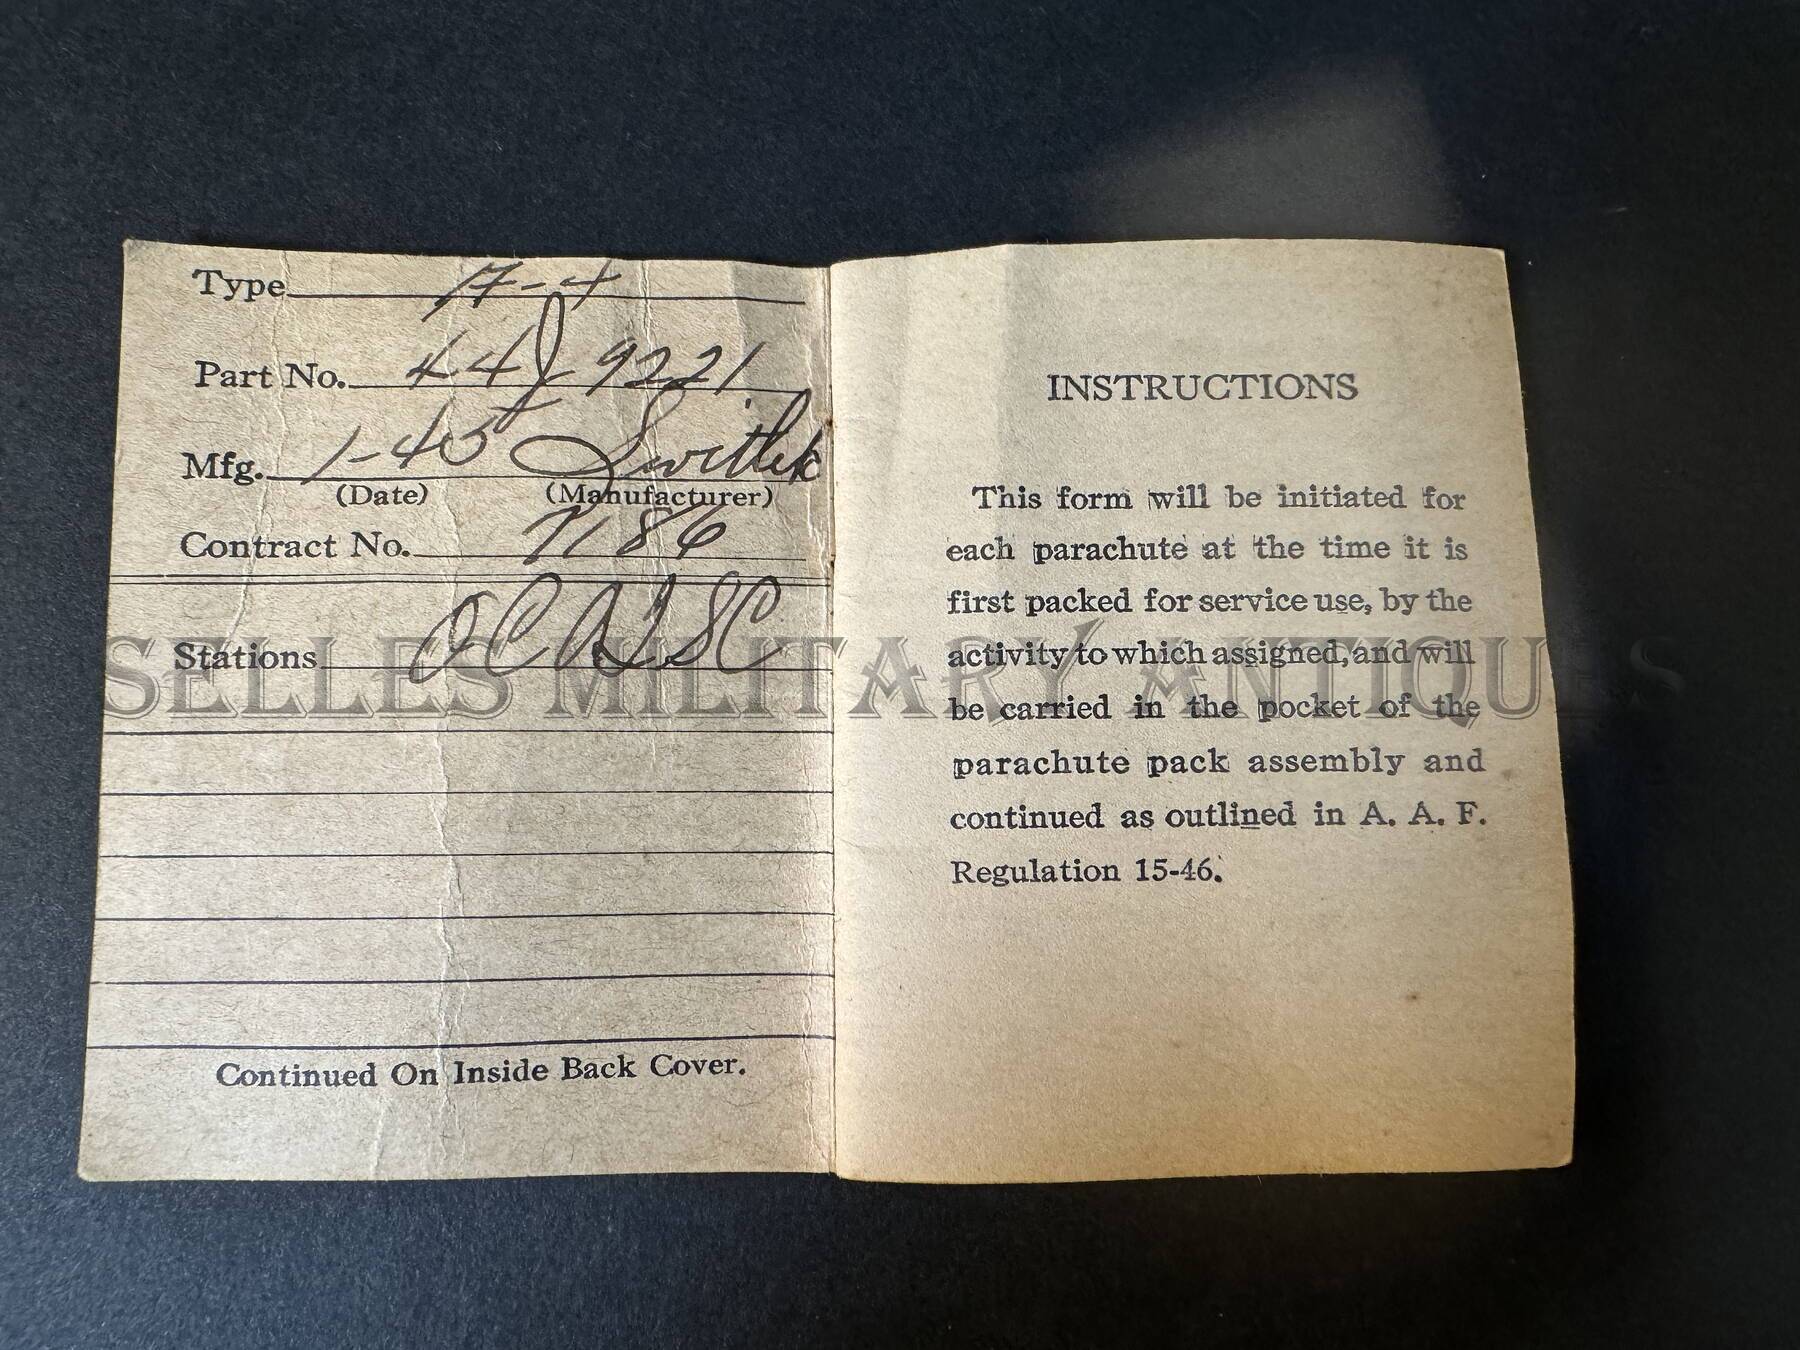 Type
Part No. 44J 9221
Mfg. 1-45 Switlik
(Date) (Manufacturer)
Contract No. 7186
Stations OCATSC
Continued On Inside Back Cover.
INSTRUCTIONS
This form will be initiated for
each parachute at the time it is
first packed for service use, by the
activity to which assigned, and will
be carried in the pocket of the
parachute pack assembly and
continued as outlined in A. A. F.
Regulation 15-46.
SELLES MILITARY ANTIQUES